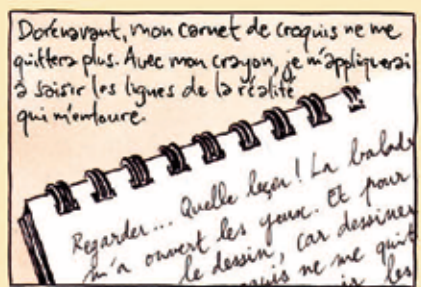 Dorénavant, mon carnet de croquis ne me
quittera plus. Avec mon crayon, je m'appliquerai
à saisir les lignes de la réalité
qui m'entoure.
Regarder... Quelle leçon! La balade
m'a ouvert les yeux. Et pour
le dessin, car dessiner
ne me quit
les